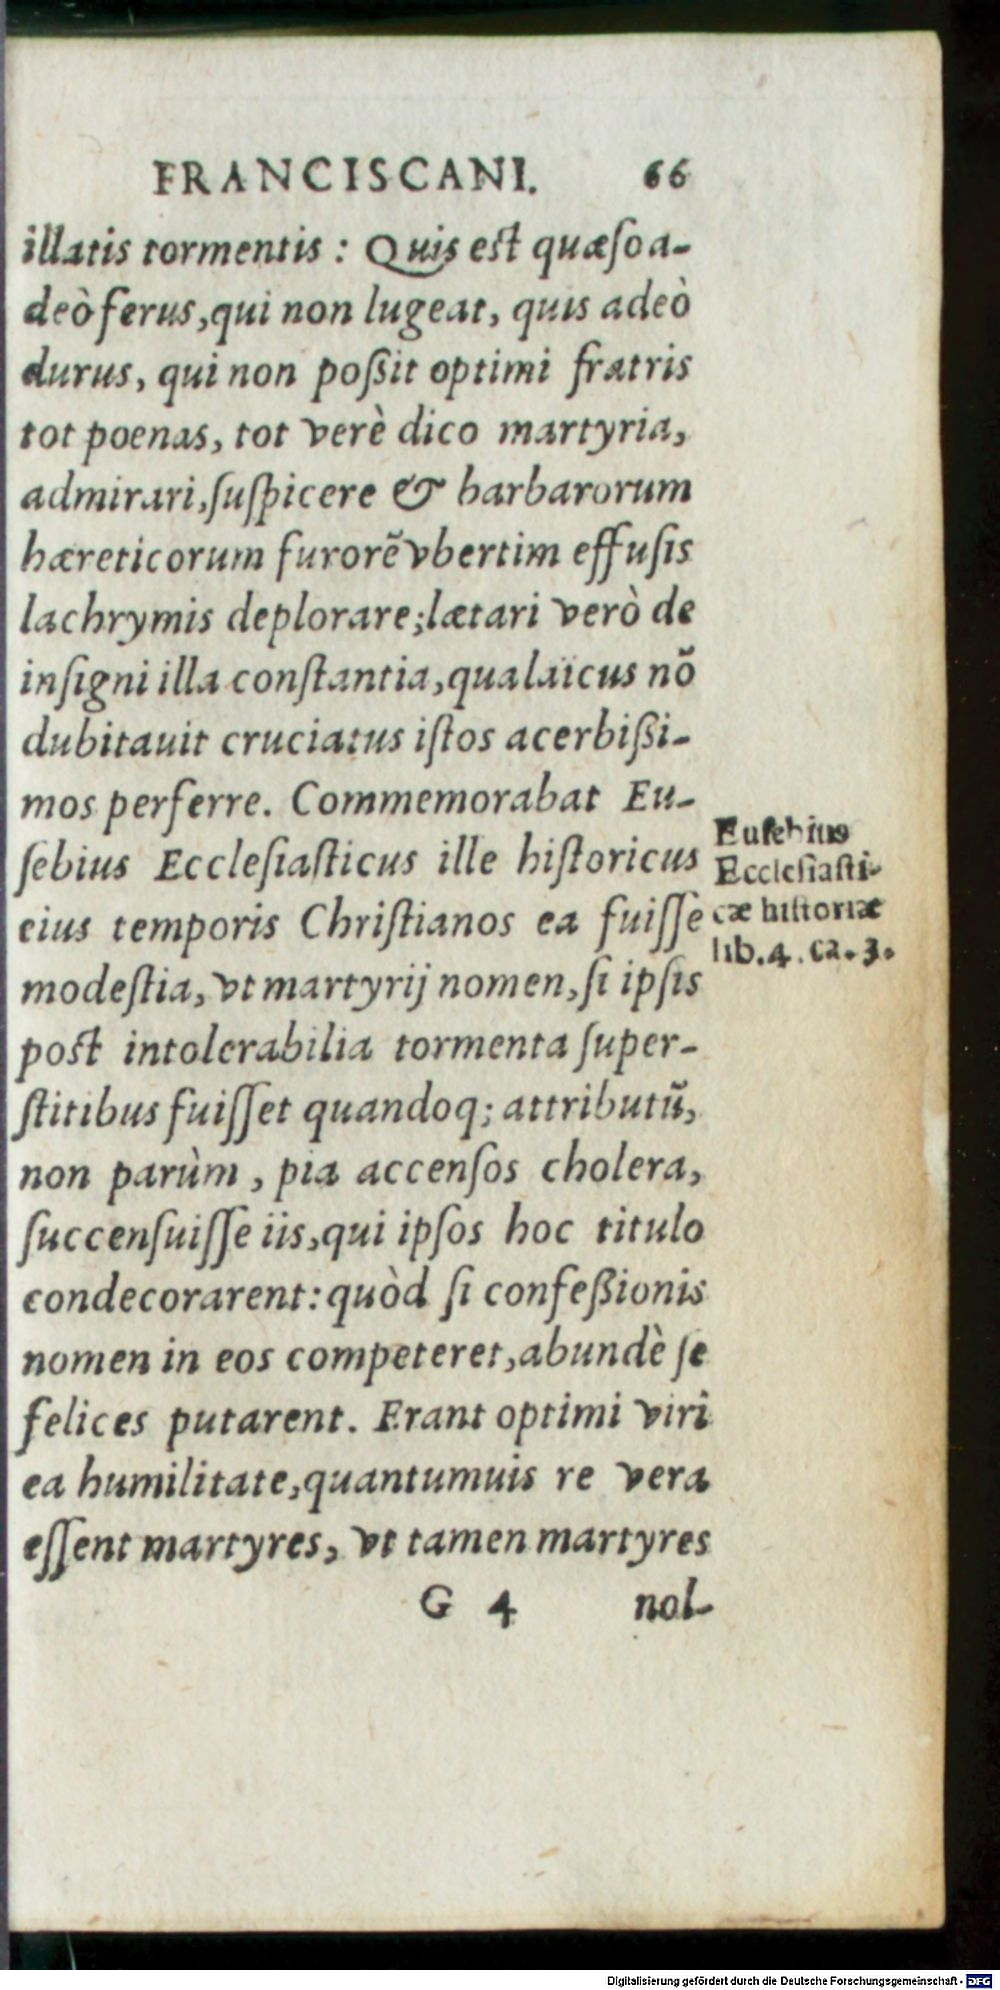 FRANCISCANI. 66
illatis tormentis : Quis est quæſo a-
deò ferus, qui non lugeat, quis adeò
durus, qui non poßit optimi fratris
tot poenas, tot verè dico martyria,
admirari, ſuſpicere & barbarorum
hæreticorum furorẽ vbertim effuſis
lachrymis deplorare; lætari verò de
inſigni illa conſtantia, qua laïcus nõ
dubitauit cruciatus iſtos acerbißi-
mos perferre. Commemorabat Eu-
ſebius Eccleſiaſticus ille hiſtoricus
eius temporis Chriſtianos ea fuiſſe
modeſtia, vt martyrij nomen, ſi ipſis
post intolerabilia tormenta ſuper-
ſtitibus fuiſſet quandoq; attributũ,
non parùm , pia accenſos cholera,
ſuccenſuiſſe iis, qui ipſos hoc titulo
condecorarent: quòd ſi confeßionis
nomen in eos competeret, abundè ſe
felices putarent. Erant optimi viri
ea humilitate, quantumuis re vera
eſſent martyres, vt tamen martyres
G 4 nol-
Euſebius
Eccleſiaſti-
cæ hiſtoriæ
lib. 4. ca. 3.
Digitalisierung gefördert durch die Deutsche Forschungsgemeinschaft - DFG